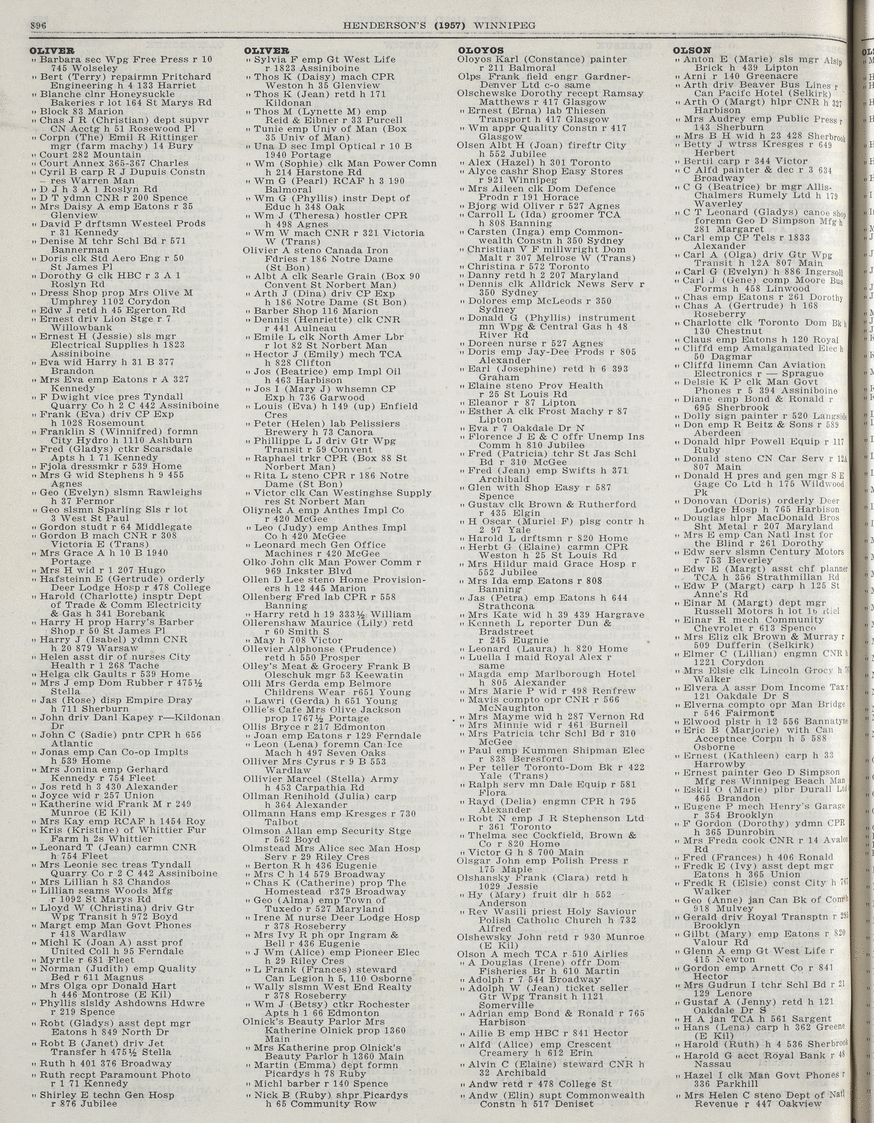 896
HENDERSON'S (1957) WINNIPEG
OLIVER
" Barbara sec Wpg Free Press r 10
745 Wolseley
" Bert (Terry) repairmn Pritchard
Engineering h 4 133 Harriet
" Blanche clnr Honeysuckle
Bakeries r lot 164 St Marys Rd
" Block 83 Marion
" Chas J R (Christian) dept supvr
CN Acctg h 51 Rosewood Pl
" Corpn (The) Emil R Rittinger
mgr (farm machy) 14 Bury
" Court 282 Mountain
" Court Annex 365-367 Charles
" Cyril B carp R J Dupuis Constn
— res Warren Man
" D J h 3 A 1 Roslyn Rd
" D T ydmn CNR r 200 Spence
" Mrs Daisy A emp Eatons r 35
Glenview
" David P drftsmn Westeel Prods
r 31 Kennedy
" Denise M tchr Schl Bd r 571
Bannerman
" Doris clk Std Aero Eng r 50
St James Pl
" Dorothy G clk HBC r 3 A 1
Roslyn Rd
" Dress Shop prop Mrs Olive M
Umphrey 1102 Corydon
" Edw J retd h 45 Egerton Rd
" Ernest driv Lion Stge r 7
Willowbank
" Ernest H (Jessie) sls mgr
Electrical Supplies h 1823
Assiniboine
" Eva wid Harry h 31 B 377
Brandon
" Mrs Eva emp Eatons r A 327
Kennedy
" F Dwight vice pres Tyndall
Quarry Co h 2 C 442 Assiniboine
" Frank (Eva) driv CP Exp
h 1028 Rosemount
" Franklin S (Winnifred) formn
City Hydro h 1110 Ashburn
" Fred (Gladys) ctkr Scarsdale
Apts h 1 71 Kennedy
" Fjola dressmkr r 539 Home
" Mrs G wid Stephens h 9 455
Agnes
" Geo (Evelyn) slsmn Rawleighs
h 37 Fermor
" Geo slsmn Sparling Sls r lot
3 West St Paul
" Gordon studt r 64 Middlegate
" Gordon B mach CNR r 308
Victoria E (Trans)
" Mrs Grace A h 10 B 1940
Portage
" Mrs H wid r 1 207 Hugo
" Hafsteinn E (Gertrude) orderly
Deer Lodge Hosp r 478 College
" Harold (Charlotte) insptr Dept
of Trade & Comm Electricity
& Gas h 341 Borebank
" Harry H prop Harry's Barber
Shop r 50 St James Pl
" Harry J (Isabel) ydmn CNR
h 20 879 Warsaw
" Helen asst dir of nurses City
Health r 1 268 Tache
" Helga clk Gaults r 539 Home
" Mrs J emp Dom Rubber r 475½
Stella
" Jas (Rose) disp Empire Dray
h 711 Sherburn
" John driv Danl Kapey r—Kildonan
Dr
" John C (Sadie) pntr CPR h 656
Atlantic
" Jonas emp Can Co-op Implts
h 539 Home
" Mrs Jonina emp Gerhard
Kennedy r 754 Fleet
" Jos retd h 3 430 Alexander
" Joyce wid r 257 Union
" Katherine wid Frank M r 249
Munroe (E Kil)
" Mrs Kay emp RCAF h 1454 Roy
" Kris (Kristine) of Whittier Fur
Farm h 2s Whittier
" Leonard T (Jean) carmn CNR
h 754 Fleet
" Mrs Leonie sec treas Tyndall
Quarry Co r 2 C 442 Assiniboine
" Mrs Lillian h 83 Chandos
" Lillian seams Woods Mfg
r 1092 St Marys Rd
" Lloyd W (Christina) driv Gtr
Wpg Transit h 972 Boyd
" Margt emp Man Govt Phones
r 418 Wardlaw
" Michl K (Joan A) asst prof
United Coll h 95 Ferndale
" Myrtle r 681 Fleet
" Norman (Judith) emp Quality
Bed r 611 Magnus
" Mrs Olga opr Donald Hart
h 446 Montrose (E Kil)
" Phyllis slsldy Ashdowns Hdwre
r 219 Spence
" Robt (Gladys) asst dept mgr
Eatons h 849 North Dr
" Robt B (Janet) driv Jet
Transfer h 475½ Stella
" Ruth h 401 376 Broadway
" Ruth recpt Paramount Photo
r 1 71 Kennedy
" Shirley E techn Gen Hosp
r 876 Jubilee
OLIVER
" Sylvia F emp Gt West Life
r 1823 Assiniboine
" Thos K (Daisy) mach CPR
Weston h 35 Glenview
" Thos K (Jean) retd h 171
Kildonan
" Thos M (Lynette M) emp
Reid & Eibner r 33 Purcell
" Tunie emp Univ of Man (Box
35 Univ of Man)
" Una D sec Impl Optical r 10 B
1940 Portage
" Wm (Sophie) clk Man Power Comn
h 214 Harstone Rd
" Wm G (Pearl) RCAF h 3 190
Balmoral
" Wm G (Phyllis) instr Dept of
Educ h 348 Oak
" Wm J (Theresa) hostler CPR
h 498 Agnes
" Wm W mach CNR r 321 Victoria
W (Trans)
Olivier A steno Canada Iron
Fdries r 186 Notre Dame
(St Bon)
" Albt A clk Searle Grain (Box 90
Convent St Norbert Man)
" Arth J (Dina) driv CP Exp
h 186 Notre Dame (St Bon)
" Barber Shop 116 Marion
" Dennis (Henriette) clk CNR
r 441 Aulneau
" Emile L clk North Amer Lbr
r lot 82 St Norbert Man
" Hector J (Emily) mech TCA
h 828 Clifton
" Jos (Beatrice) emp Impl Oil
h 463 Harbison
" Jos I (Mary J) whsemn CP
Exp h 736 Garwood
" Louis (Eva) h 149 (up) Enfield
Cres
" Peter (Helen) lab Pelissiers
Brewery h 73 Canora
" Phillippe L J driv Gtr Wpg
Transit r 59 Convent
" Raphael trkr CPR (Box 88 St
Norbert Man)
" Rita L steno CPR r 186 Notre
Dame (St Bon)
" Victor clk Can Westinghse Supply
res St Norbert Man
Oliynek A emp Anthes Impl Co
r 420 McGee
" Leo (Judy) emp Anthes Impl
Co h 420 McGee
" Leonard mech Gen Office
Machines r 420 McGee
Olko John clk Man Power Comm r
969 Inkster Blvd
Ollen D Lee steno Home Provision-
ers h 12 445 Marion
Ollenberg Fred lab CPR r 558
Banning
" Harry retd h 19 333½ William
Ollerenshaw Maurice (Lily) retd
r 60 Smith S
" May h 708 Victor
Ollevier Alphonse (Prudence)
retd h 550 Prosper
Olley's Meat & Grocery Frank B
Oleschuk mgr 53 Keewatin
Olli Mrs Gerda emp Belmore
Childrens Wear r651 Young
" Lawri (Gerda) h 651 Young
Ollie's Cafe Mrs Olive Jackson
prop 1767½ Portage
Ollis Bryce r 217 Edmonton
" Joan emp Eatons r 129 Ferndale
" Leon (Lena) foremn Can Ice
Mach h 497 Seven Oaks
Olliver Mrs Cyrus r 9 B 553
Wardlaw
Ollivier Marcel (Stella) Army
h 453 Carpathia Rd
Ollman Renihold (Julia) carp
h 364 Alexander
Ollmann Hans emp Kresges r 730
Talbot
Olmson Allan emp Security Stge
r 562 Boyd
Olmstead Mrs Alice sec Man Hosp
Serv r 29 Riley Cres
" Berton R h 436 Eugenie
" Mrs C h 14 579 Broadway
" Chas K (Catherine) prop The
Homestead r379 Broadway
" Geo (Alma) emp Town of
Tuxedo r 527 Maryland
" Irene M nurse Deer Lodge Hosp
r 378 Roseberry
" Mrs Ivy R ph opr Ingram &
Bell r 436 Eugenie
" J Wm (Alice) emp Pioneer Elec
h 29 Riley Cres
" L Frank (Frances) steward
Can Legion h 5, 110 Osborne
" Wally slsmn West End Realty
r 378 Roseberry
" Wm J (Betsy) ctkr Rochester
Apts h 1 66 Edmonton
Olnick's Beauty Parlor Mrs
Katherine Olnick prop 1360
Main
" Mrs Katherine prop Olnick's
Beauty Parlor h 1360 Main
" Martin (Emma) dept formn
Picardys h 78 Ruby
" Michl barber r 140 Spence
" Nick B (Ruby) shpr Picardys
h 65 Community Row
OLOYOS
Oloyos Karl (Constance) painter
r 211 Balmoral
Olps Frank field engr Gardner-
Denver Ltd c-o same
Olschewske Dorothy recept Ramsay
Matthews r 417 Glasgow
" Ernest (Erna) lab Thiesen
Transport h 417 Glasgow
" Wm appr Quality Constn r 417
Glasgow
Olsen Albt H (Joan) fireftr City
h 552 Jubilee
" Alex (Hazel) h 301 Toronto
" Alyce cashr Shop Easy Stores
r 921 Winnipeg
" Mrs Aileen clk Dom Defence
Prodn r 191 Horace
" Bjorg wid Oliver r 527 Agnes
" Carroll L (Ida) groomer TCA
h 808 Banning
" Carsten (Inga) emp Common-
wealth Constn h 350 Sydney
" Christian V F millwright Dom
Malt r 307 Melrose W (Trans)
" Christina r 572 Toronto
" Danny retd h 2 207 Maryland
" Dennis clk Alldrick News Serv r
350 Sydney
" Dolores emp McLeods r 350
Sydney
" Donald G (Phyllis) instrument
mn Wpg & Central Gas h 48
River Rd
" Doreen nurse r 527 Agnes
" Doris emp Jay-Dee Prods r 805
Alexander
" Earl (Josephine) retd h 6 393
Graham
" Elaine steno Prov Health
r 25 St Louis Rd
" Eleanor r 87 Lipton
" Esther A clk Frost Machy r 87
Lipton
" Eva r 7 Oakdale Dr N
" Florence J E & C offr Unemp Ins
Comm h 810 Jubilee
" Fred (Patricia) tchr St Jas Schl
Bd r 310 McGee
" Fred (Jean) emp Swifts h 371
Archibald
" Glen with Shop Easy r 587
Spence
" Gustav clk Brown & Rutherford
r 435 Elgin
" H Oscar (Muriel F) plsg contr h
2 97 Yale
" Harold L drftsmn r 820 Home
" Herbt G (Elaine) carmn CPR
Weston h 25 St Louis Rd
" Mrs Hildur maid Grace Hosp r
552 Jubilee
" Mrs Ida emp Eatons r 808
Banning
" Jas (Petra) emp Eatons h 644
Strathcona
" Mrs Kate wid h 39 439 Hargrave
" Kenneth L reporter Dun &
Bradstreet
r 245 Eugnie
" Leonard (Laura) h 820 Home
" Luella I maid Royal Alex r
same
" Magda emp Marlborough Hotel
h 805 Alexander
" Mrs Marie P wid r 498 Renfrew
" Mavis compto opr CNR r 566
McNaughton
" Mrs Mayme wid h 287 Vernon Rd
" Mrs Minnie wid r 461 Burnell
" Mrs Patricia tchr Schl Bd r 310
McGee
" Paul emp Kummen Shipman Elec
r 838 Beresford
" Per teller Toronto-Dom Bk r 422
Yale (Trans)
" Ralph serv mn Dale Equip r 581
Flora
" Rayd (Delia) engmn CPR h 795
Alexander
" Robt N emp J R Stephenson Ltd
r 361 Toronto
" Thelma sec Cockfield, Brown &
Co r 820 Home
" Victor G h 8 700 Main
Olsgar John emp Polish Press r
175 Maple
Olshansky Frank (Clara) retd h
1029 Jessie
" Hy (Mary) fruit dlr h 552
Anderson
" Rev Wasili priest Holy Saviour
Polish Catholic Church h 732
Alfred
Olshewsky John retd r 930 Munroe
(E Kil)
Olson A mech TCA r 510 Airlies
" A Douglas (Irene) offr Dom
Fisheries Br h 610 Martin
" Adolph r 7 544 Broadway
" Adolph W (Jean) ticket seller
Gtr Wpg Transit h 1121
Somerville
" Adrian emp Bond & Ronald r 765
Harbison
" Ailie B emp HBC r 841 Hector
" Alfd (Alice) emp Crescent
Creamery h 612 Erin
" Alvin C (Elaine) steward CNR h
32 Archibald
" Andw retd r 478 College St
" Andw (Elin) supt Commonwealth
Constn h 517 Deniset
OLSON
" Anton E (Marie) sls mgr Alsip
Brick h 439 Lipton
" Arni r 140 Greenacre
" Arth driv Beaver Bus Lines r
Can Pacifc Hotel (Selkirk)
" Arth O (Margt) hlpr CNR h 327
Harbison
" Mrs Audrey emp Public Press r
143 Sherburn
" Mrs B H wid h 23 428 Sherbrook
" Betty J wtrss Kresges r 649
Herbert
" Bertil carp r 344 Victor
" C Alfd painter & dec r 3 634
Broadway
" C G (Beatrice) br mgr Allis-
Chalmers Rumely Ltd h 179
Waverley
" C T Leonard (Gladys) canoe shop
foremn Geo D Simpson Mfg h
281 Margaret
" Carl emp CP Tels r 1833
Alexander
" Carl A (Olga) driv Gtr Wpg
Transit h 12A 807 Main
" Carl G (Evelyn) h 886 Ingersoll
" Carl J (Gene) comp Moore Bus
Forms h 458 Linwood
" Chas emp Eatons r 261 Dorothy
" Chas A (Gertrude) h 168
Roseberry
" Charlotte clk Toronto Dom Bk h
130 Chestnut
" Claus emp Eatons h 120 Royal
" Cliffd emp Amalgamated Elec h
50 Dagmar
" Cliffd linemn Can Aviation
Electronics r — Sprague
" Delsie K P clk Man Govt
Phones r 5 394 Assiniboine
" Diane emp Bond & Ronald r
695 Sherbrook
" Dolly sign painter r 520 Langside
" Don emp R Beitz & Sons r 589
Aberdeen
" Donald hlpr Powell Equip r 117
Ruby
" Donald steno CN Car Serv r 12A
807 Main
" Donald H pres and gen mgr S E
Gage Co Ltd h 175 Wildwood
Pk
" Donovan (Doris) orderly Deer
Lodge Hosp h 765 Harbison
" Douglas hlpr MacDonald Bros
Sht Metal r 207 Maryland
" Mrs E emp Can Natl Inst for
the Blind r 261 Dorothy
" Edw serv slsmn Century Motors
r 753 Beverley
" Edw E (Margt) asst chf planner
TCA h 356 Strathmillan Rd
" Edw P (Margt) carp h 125 St
Anne's Rd
" Einar M (Margt) dept mgr
Russell Motors h lot 16 Riel
" Einar R mech Community
Chevrolet r 613 Spence
" Mrs Eliz clk Brown & Murray r
509 Dufferin (Selkirk)
" Elmer C (Lillian) engmn CNR h
1221 Corydon
" Mrs Elsie clk Lincoln Grocy h
Walker
" Elvera A assr Dom Income Tax r
121 Oakdale Dr S
" Elverna compto opr Man Bridge
r 546 Fairmont
" Elwood plstr h 12 556 Bannatyne
" Eric B (Marjorie) with Can
Acceptnce Corpn h 5 588
Osborne
" Ernest (Kathleen) carp h 33
Harrowby
" Ernest painter Geo D Simpson
Mfg res Winnipeg Beach Man
" Eskil O (Marie) plbr Durall Ltd
465 Brandon
" Eugene P mech Henry's Garage
r 354 Brooklyn
" F Gordon (Dorothy) ydmn CPR
h 365 Dunrobin
" Mrs Freda cook CNR r 14 Avalon
Rd
" Fred (Frances) h 406 Ronald
" Fredk E (Ivy) asst dept mgr
Eatons h 365 Union
" Fredk R (Elsie) const City h
Walker
" Geo (Anne) jan Can Bk of Comm
918 Mulvey
" Gerald driv Royal Transptn r
Brooklyn
" Gilbt (Mary) emp Eatons r 820
Valour Rd
" Glenn A emp Gt West Life r
415 Newton
" Gordon emp Arnett Co r 841
Hector
" Mrs Gudrun I tchr Schl Bd r 21
129 Lenore
" Gustaf A (Jenny) retd h 121
Oakdale Dr S
" H A jan TCA h 561 Sargent
" Hans (Lena) carp h 362 Greene
(E Kil)
" Harold (Ruth) h 4 536 Sherbrook
" Harold G acct Royal Bank r 48
Nassau
" Hazel I clk Man Govt Phones r
336 Parkhill
" Mrs Helen C steno Dept of Natl
Revenue r 447 Oakview